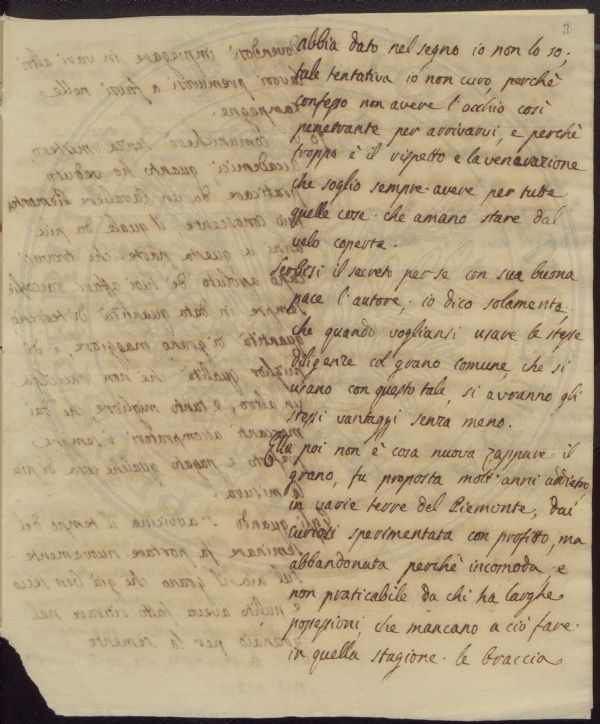 3
abbia dato nel segno io non lo so;
tale tentativa io non curo, perchè
confesso non avere l'occhio così
penetrante per arrivarvi, e perchè
troppo è il rispetto e la venerazione
che soglio sempre avere per tutte
quelle cose che amano stare dal
velo coperte.
Serbisi il secreto per se con sua buona
pace l'autore; io dico solamente,
che quando vogliansi usare le stesse
diligenze col grano comune, che si
usano con questo tale, si avranno gli
stessi vantaggi senza meno.
Ella poi non è cosa nuova zappare il
grano, fu proposta molt'anni addietro
in varie terre del Piemonte, dai
curiosi sperimentata con profitto, ma
abbandonata perchè incomoda e
non praticabile da chi ha larghe
possessioni, che mancano a ciò fare
in quella stagione le braccia